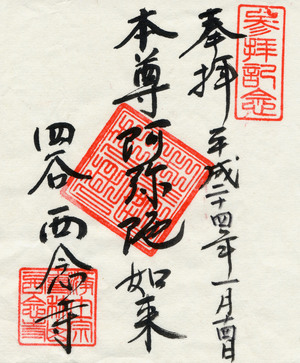 参拝記念
奉拝 平成二十四年一月十四日
本尊 阿弥陀如来
四谷 西念寺